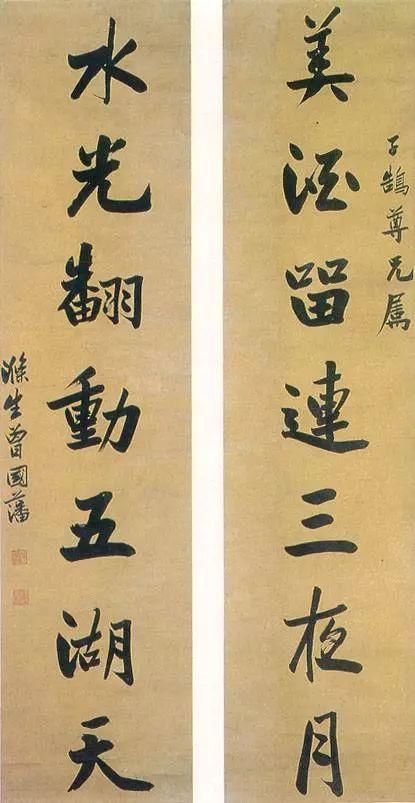 美酒留連三夜月
子鶴尊兄属
水光翻動五湖天
滌生曾國藩